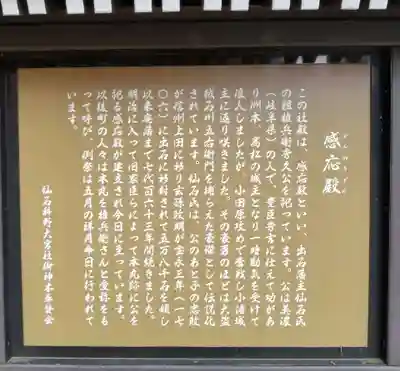 感応殿
かんのうでん
この社殿は、感応殿といい、出石藩主仙石氏
の祖権兵衛秀久公を祀っています。公は美濃
(岐阜県)の人で、豊臣秀吉に仕えて功があ
り洲本、高松の城主となり一時勘気を受けて
浪人しましたが、小田原攻めで奮戦し小諸城
主に返り咲きました。その豪勇のほどは大盗
賊石川五右衛門を捕らえた豪傑として伝説化
されています。仙石氏は、公のあと子の忠政
が信州上田に移り玄孫政明が宝永三年(一七
〇六)に出石に移封されて五万八千石を領し
以来廃藩まで七代百六十三年間続きました。
明治に入って旧家臣らによって本丸跡に公を
祀る感応殿が建立され今日に至っています。
以後町の人々は本丸を権兵衛さんと愛称をも
って呼び、例祭は五月の祥月命日に行われて
います。